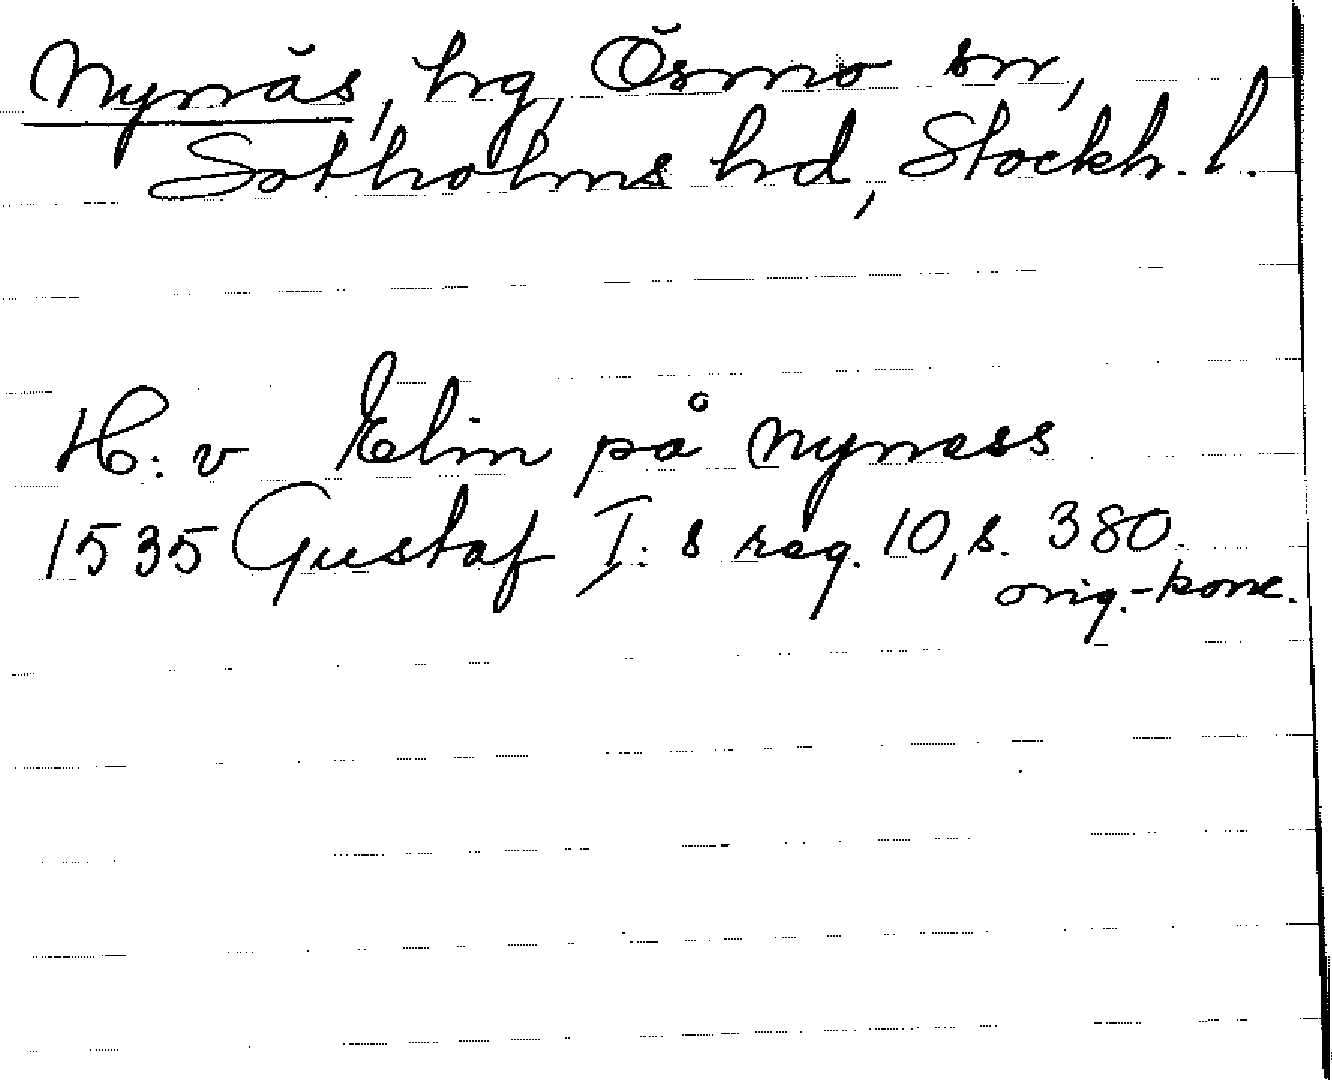 Nynäs, hg, Ösmo sn,
Sotholms hd, Stockh. l.
H: v Elin på Nyness
1535 Gustaf I: s reg. 10, s. 380.
orig.-konc.